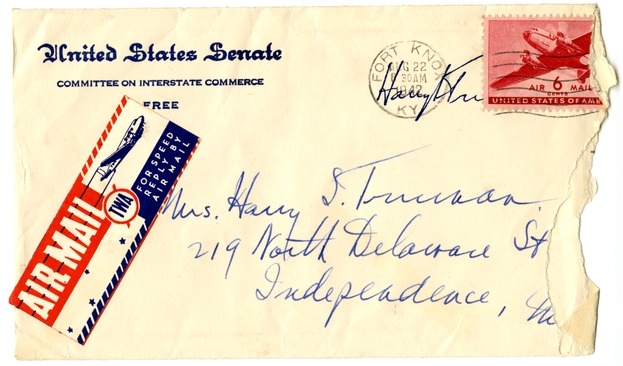 United States Senate
COMMITTEE ON INTERSTATE COMMERCE
FREE
FORT KNOX
AUG 22
8 30AM
1942
KY.
Harry S Tru
AIR 6 MAIL
CENTS
UNITED STATES OF AME
FOR SPEED
REPLY BY
AIR MAIL
TWA
AIR MAIL
Mrs. Harry S. Truman.
219 North Delaware St
Independence, M